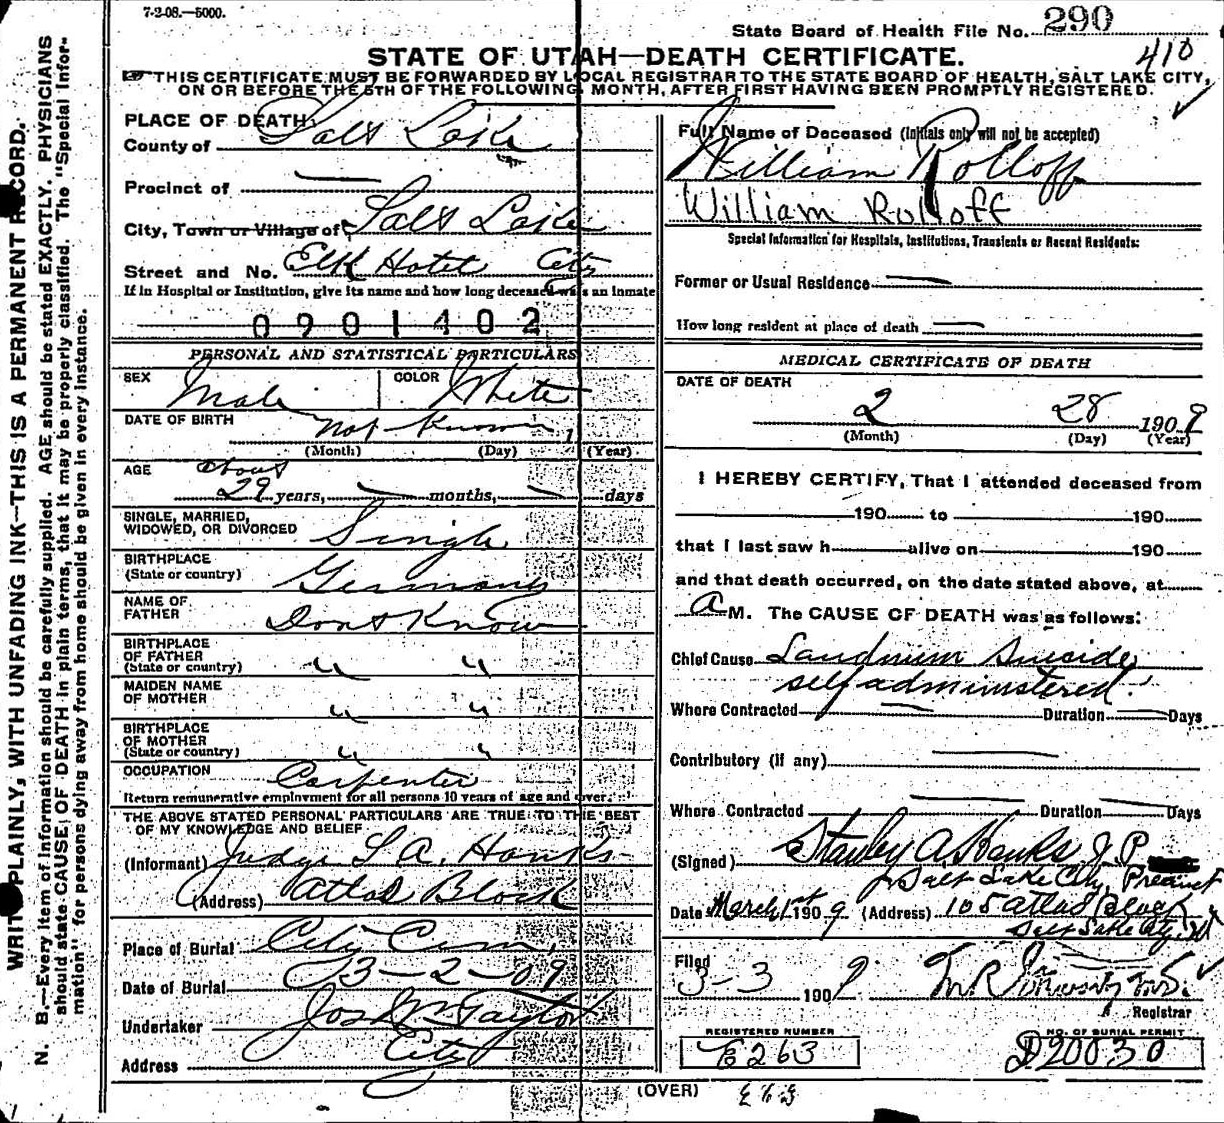 7-2-08.—5000.
State Board of Health File No. 290
410
STATE OF UTAH—DEATH CERTIFICATE.
THIS CERTIFICATE MUST BE FORWARDED BY LOCAL REGISTRAR TO THE STATE BOARD OF HEALTH, SALT LAKE CITY,
ON OR BEFORE THE 5TH OF THE FOLLOWING MONTH, AFTER FIRST HAVING BEEN PROMPTLY REGISTERED.
WRITE PLAINLY, WITH UNFADING INK—THIS IS A PERMANENT RECORD.
N. B.—Every item of information should be carefully supplied. AGE should be stated EXACTLY. PHYSICIANS
should state CAUSE OF DEATH in plain terms, that it may be properly classified. The "Special Infor-
mation" for persons dying away from home should be given in every instance.
PLACE OF DEATH
County of Salt Lake
Precinct of —
City, Town or Village of Salt Lake
Street and No. Elk Hotel City
If in Hospital or Institution, give its name and how long deceased was an inmate
0901402
PERSONAL AND STATISTICAL PARTICULARS
SEX Male COLOR White
DATE OF BIRTH not known 1
(Month) (Day) (Year)
AGE about
29 years, — months, — days
SINGLE, MARRIED,
WIDOWED, OR DIVORCED Single
BIRTHPLACE
(State or country) Germany
NAME OF
FATHER Dont Know
BIRTHPLACE
OF FATHER
(State or country) " "
MAIDEN NAME
OF MOTHER " "
BIRTHPLACE
OF MOTHER
(State or country) " "
OCCUPATION Carpenter
Return remunerative employment for all persons 10 years of age and over.
THE ABOVE STATED PERSONAL PARTICULARS ARE TRUE TO THE BEST
OF MY KNOWLEDGE AND BELIEF
(Informant) Judge S A. Hanks
(Address) Atlas Block
Place of Burial City Cem.
Date of Burial 3-2-09
Undertaker Jos Wm Taylor
Address City
Full Name of Deceased (Initials only will not be accepted)
William Rolloff
William Rolloff
Special Information for Hospitals, Institutions, Transients or Recent Residents:
Former or Usual Residence —
How long resident at place of death —
MEDICAL CERTIFICATE OF DEATH
DATE OF DEATH
2 28 1909
(Month) (Day) (Year)
I HEREBY CERTIFY, That I attended deceased from
190 to 190
that I last saw h alive on 190
and that death occurred, on the date stated above, at
a M. The CAUSE OF DEATH was as follows:
Chief Cause Laudnum Suicide
self administered.
Where Contracted — Duration — Days
Contributory (if any) —
Where Contracted — Duration — Days
(Signed) Stanley A. Hanks J. P.
Salt Lake City, Precinct
Date March 1st 1909 (Address) 105 Atlas Block
Salt Lake City, Ut
Filed
3-3 1909
Registrar
REGISTERED NUMBER
263
NO. OF BURIAL PERMIT
D20030
(OVER)